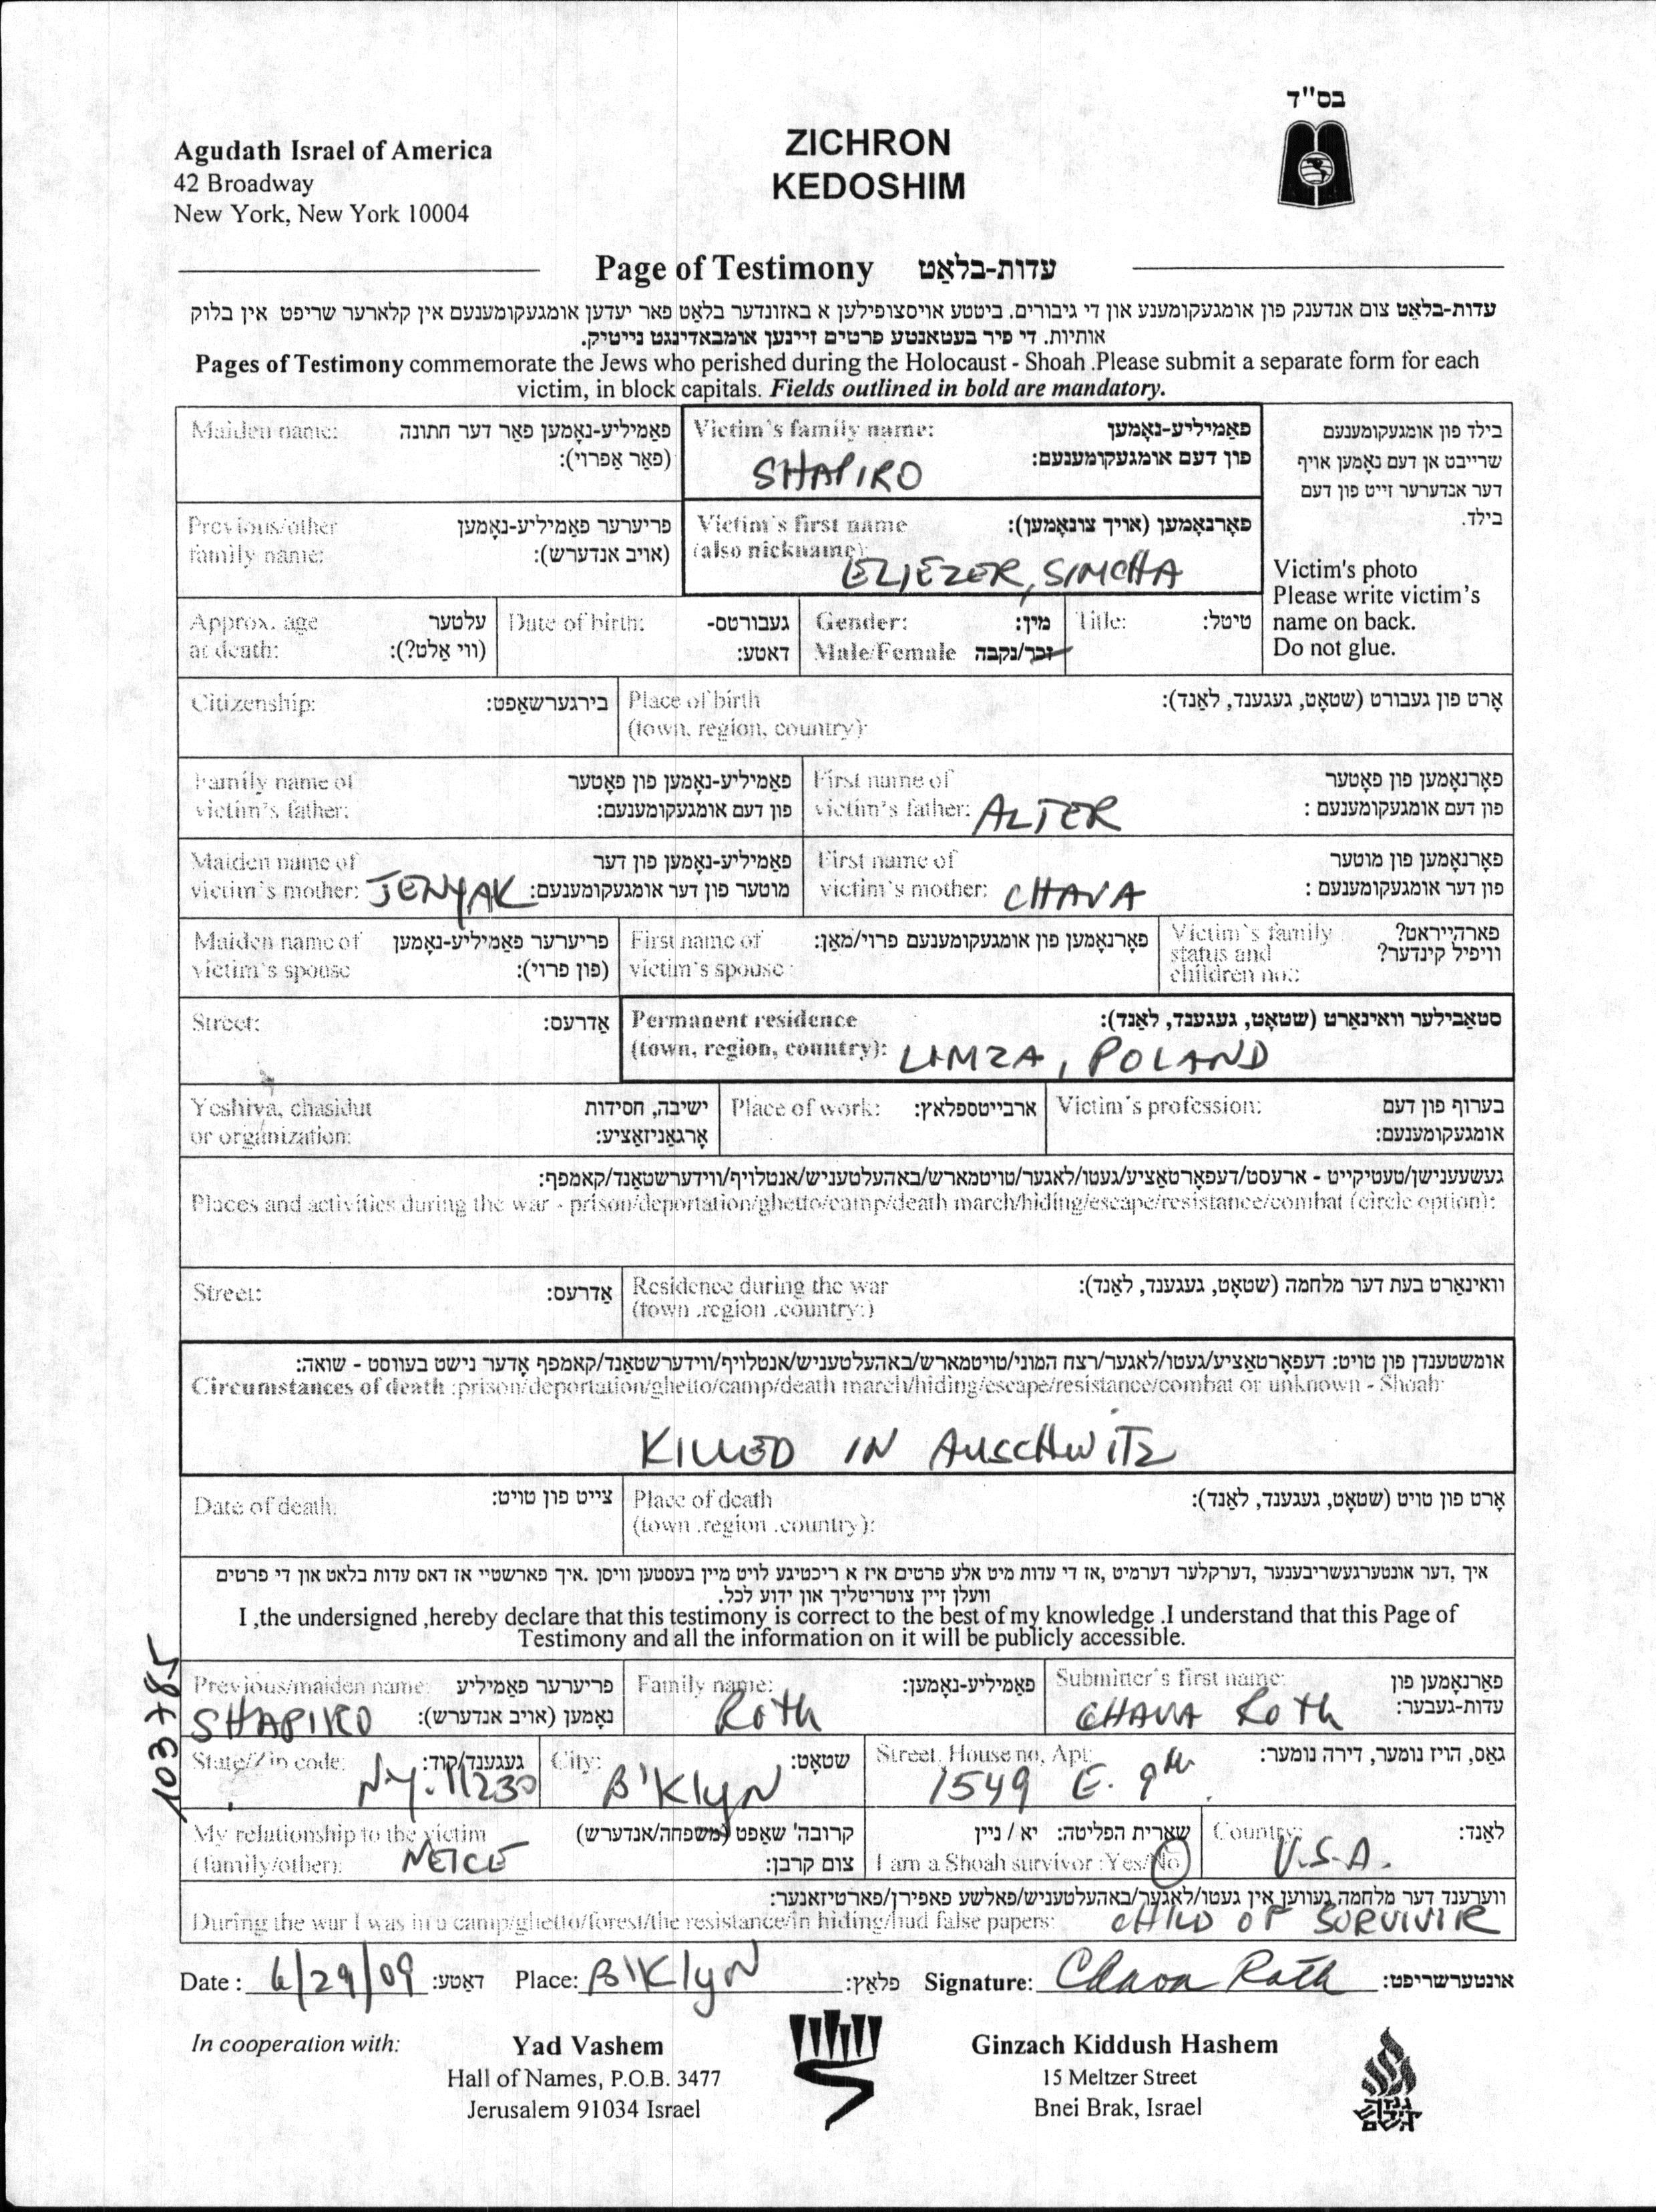 בס"ד
Agudath Israel of America
42 Broadway
New York, New York 10004
ZICHRON
KEDOSHIM
Page of Testimony עדות-בלאַט
עדות-בלאַט צום אנדענק פון אומגעקומענע און די גיבורים. ביטטע אויסצופילען א באזונדער בלאַט פאר יעדען אומגעקומענעם אין קלארער שריפט אין בלוק
אותיות. די פיר בעטאנטע פרטים זיינען אומבאדינגט נייטיק.
Pages of Testimony commemorate the Jews who perished during the Holocaust - Shoah .Please submit a separate form for each
victim, in block capitals. Fields outlined in bold are mandatory.
Maiden name: פאַמיליע-נאָמען פאַר דער חתונה
(פאַר אַפרוי):
Victim's family name: פאַמיליע-נאָמען
פון דעם אומגעקומענעם:
SHAPIRO
בילד פון אומגעקומענעם
שרייבט אן דעם נאָמען אויף
דער אנדערער זייט פון דעם
בילד.
Previous/other פריערער פאַמיליע-נאָמען
family name: (אויב אנדערש):
Victim's first name פאָרנאָמען (אויך צונאָמען):
(also nickname): ELIEZER, SIMCHA
Victim's photo
Please write victim's
name on back.
Do not glue.
Approx. age עלטער
at death: (ווי אַלט?):
Date of birth: געבורטס-
דאַטע:
Gender: מין:
Male/Female זכר/נקבה
Title: טיטל:
Citizenship: בירגערשאַפט:
Place of birth אָרט פון געבורט (שטאָט, געגענד, לאַנד):
(town, region, country):
Family name of פאַמיליע-נאָמען פון פאָטער
victim's father: פון דעם אומגעקומענעם:
First name of פאָרנאָמען פון פאָטער
victim's father: ALTER פון דעם אומגעקומענעם :
Maiden name of פאַמיליע-נאָמען פון דער
victim's mother: JENYAK מוטער פון דער אומגעקומענעם:
First name of פאָרנאָמען פון מוטער
victim's mother: CHAVA פון דער אומגעקומענעם :
Maiden name of פריערער פאַמיליע-נאָמען
victim's spouse (פון פרוי):
First name of פאָרנאָמען פון אומגעקומענעם פרוי/מאַן:
victim's spouse :
Victim's family פארהייראט?
status and וויפיל קינדער?
children no.:
Street: אַדרעס:
Permanent residence סטאַבילער וואינאַרט (שטאָט, געגענד, לאַנד):
(town, region, country): LIMZA, POLAND
Yeshiva, chasidut ישיבה, חסידות
or organization: אָרגאַניזאַציע:
Place of work: ארבייטספלאץ:
Victim's profession: בערוף פון דעם
אומגעקומענעם:
געשעענישן/טעטיקייט - ארעסט/דעפאָרטאַציע/געטו/לאגער/טויטמארש/באהעלטעניש/אנטלויף/ווידערשטאַנד/קאמפף:
Places and activities during the war - prison/deportation/ghetto/camp/death march/hiding/escape/resistance/combat (circle option):
Street: אַדרעס:
Residence during the war וואינאַרט בעת דער מלחמה (שטאָט, געגענד, לאַנד):
(town .region .country:)
אומשטענדן פון טויט: דעפאָרטאַציע/געטו/לאגער/רצח המוני/טויטמארש/באהעלטעניש/אנטלויף/ווידערשטאַנד/קאמפף אָדער נישט בעווסט - שואה:
Circumstances of death :prison/deportation/ghetto/camp/death march/hiding/escape/resistance/combat or unknown - Shoah:
KILLED IN AUSCHWITZ
Date of death. צייט פון טויט:
Place of death אָרט פון טויט (שטאָט, געגענד, לאַנד):
(town .region .country):
איך ,דער אונטערגעשריבענער ,דערקלער דערמיט ,אז די עדות מיט אלע פרטים איז א ריכטיגע לויט מיין בעסטען וויסן .איך פארשטיי אז דאס עדות בלאט און די פרטים
וועלן זיין צוטריטליך און ידוע לכל.
I ,the undersigned ,hereby declare that this testimony is correct to the best of my knowledge .I understand that this Page of
Testimony and all the information on it will be publicly accessible.
103785
Previous/maiden name: פריערער פאַמיליע
SHAPIRO נאָמען (אויב אנדערש):
Family name: פאַמיליע-נאָמען:
Roth
Submitter's first name: פאָרנאָמען פון
עדות-געבער:
CHAVA Roth
State/Zip code: געגענד/קוד:
NY. 11230
City: שטאָט:
B'Klyn
Street, House no, Apt: גאַס, הויז נומער, דירה נומער:
1549 E. 9th
My relationship to the victim קרובה' שאַפט (משפחה/אנדערש)
(family/other): NEICE צום קרבן:
שארית הפליטה: יא / ניין
I am a Shoah survivor :Yes/No
Country: לאַנד:
U.S.A.
ווערענד דער מלחמה געווען אין געטו/לאגער/באהעלטעניש/פאלשע פאפירן/פארטיזאנער:
During the war I was in a camp/ghetto/forest/the resistance/in hiding/had false papers: CHILD OF SURVIVIR
Date : 6/29/09 דאַטע: Place: B'Klyn פלאַץ: Signature: Chava Roth אונטערשריפט:
In cooperation with:
Yad Vashem
Hall of Names, P.O.B. 3477
Jerusalem 91034 Israel
Ginzach Kiddush Hashem
15 Meltzer Street
Bnei Brak, Israel
גנזך
קידוש
השם